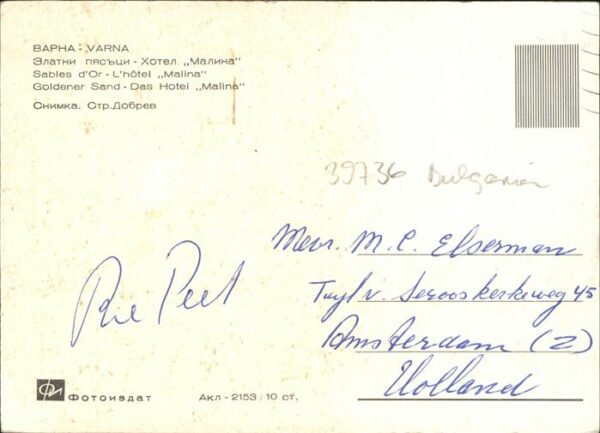 ВАРНА - VARNA
Златни пясъци - Хотел „Малина"
Sables d'Or - L'hôtel „Malina"
Goldener Sand - Das Hotel „Malina"
Снимка. Стр. Добрев
39736 Bulgarien
Mevr. M. C. Elserman
v. Serooskerkeweg 45
Amsterdam (Z)
Holland
Фотоиздат Акл - 2153 / 10 ст.